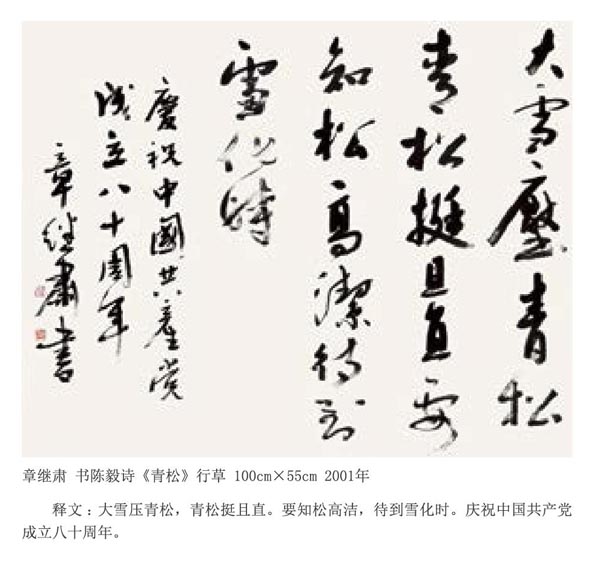 大雪壓青松
青松挺且直要
知松高潔待到
雪化時
慶祝中國共產党
成立八十周年
章继肃书
章继肃 书陈毅诗《青松》行草 100cm×55cm 2001年
释文：大雪压青松，青松挺且直。要知松高洁，待到雪化时。庆祝中国共产党
成立八十周年。